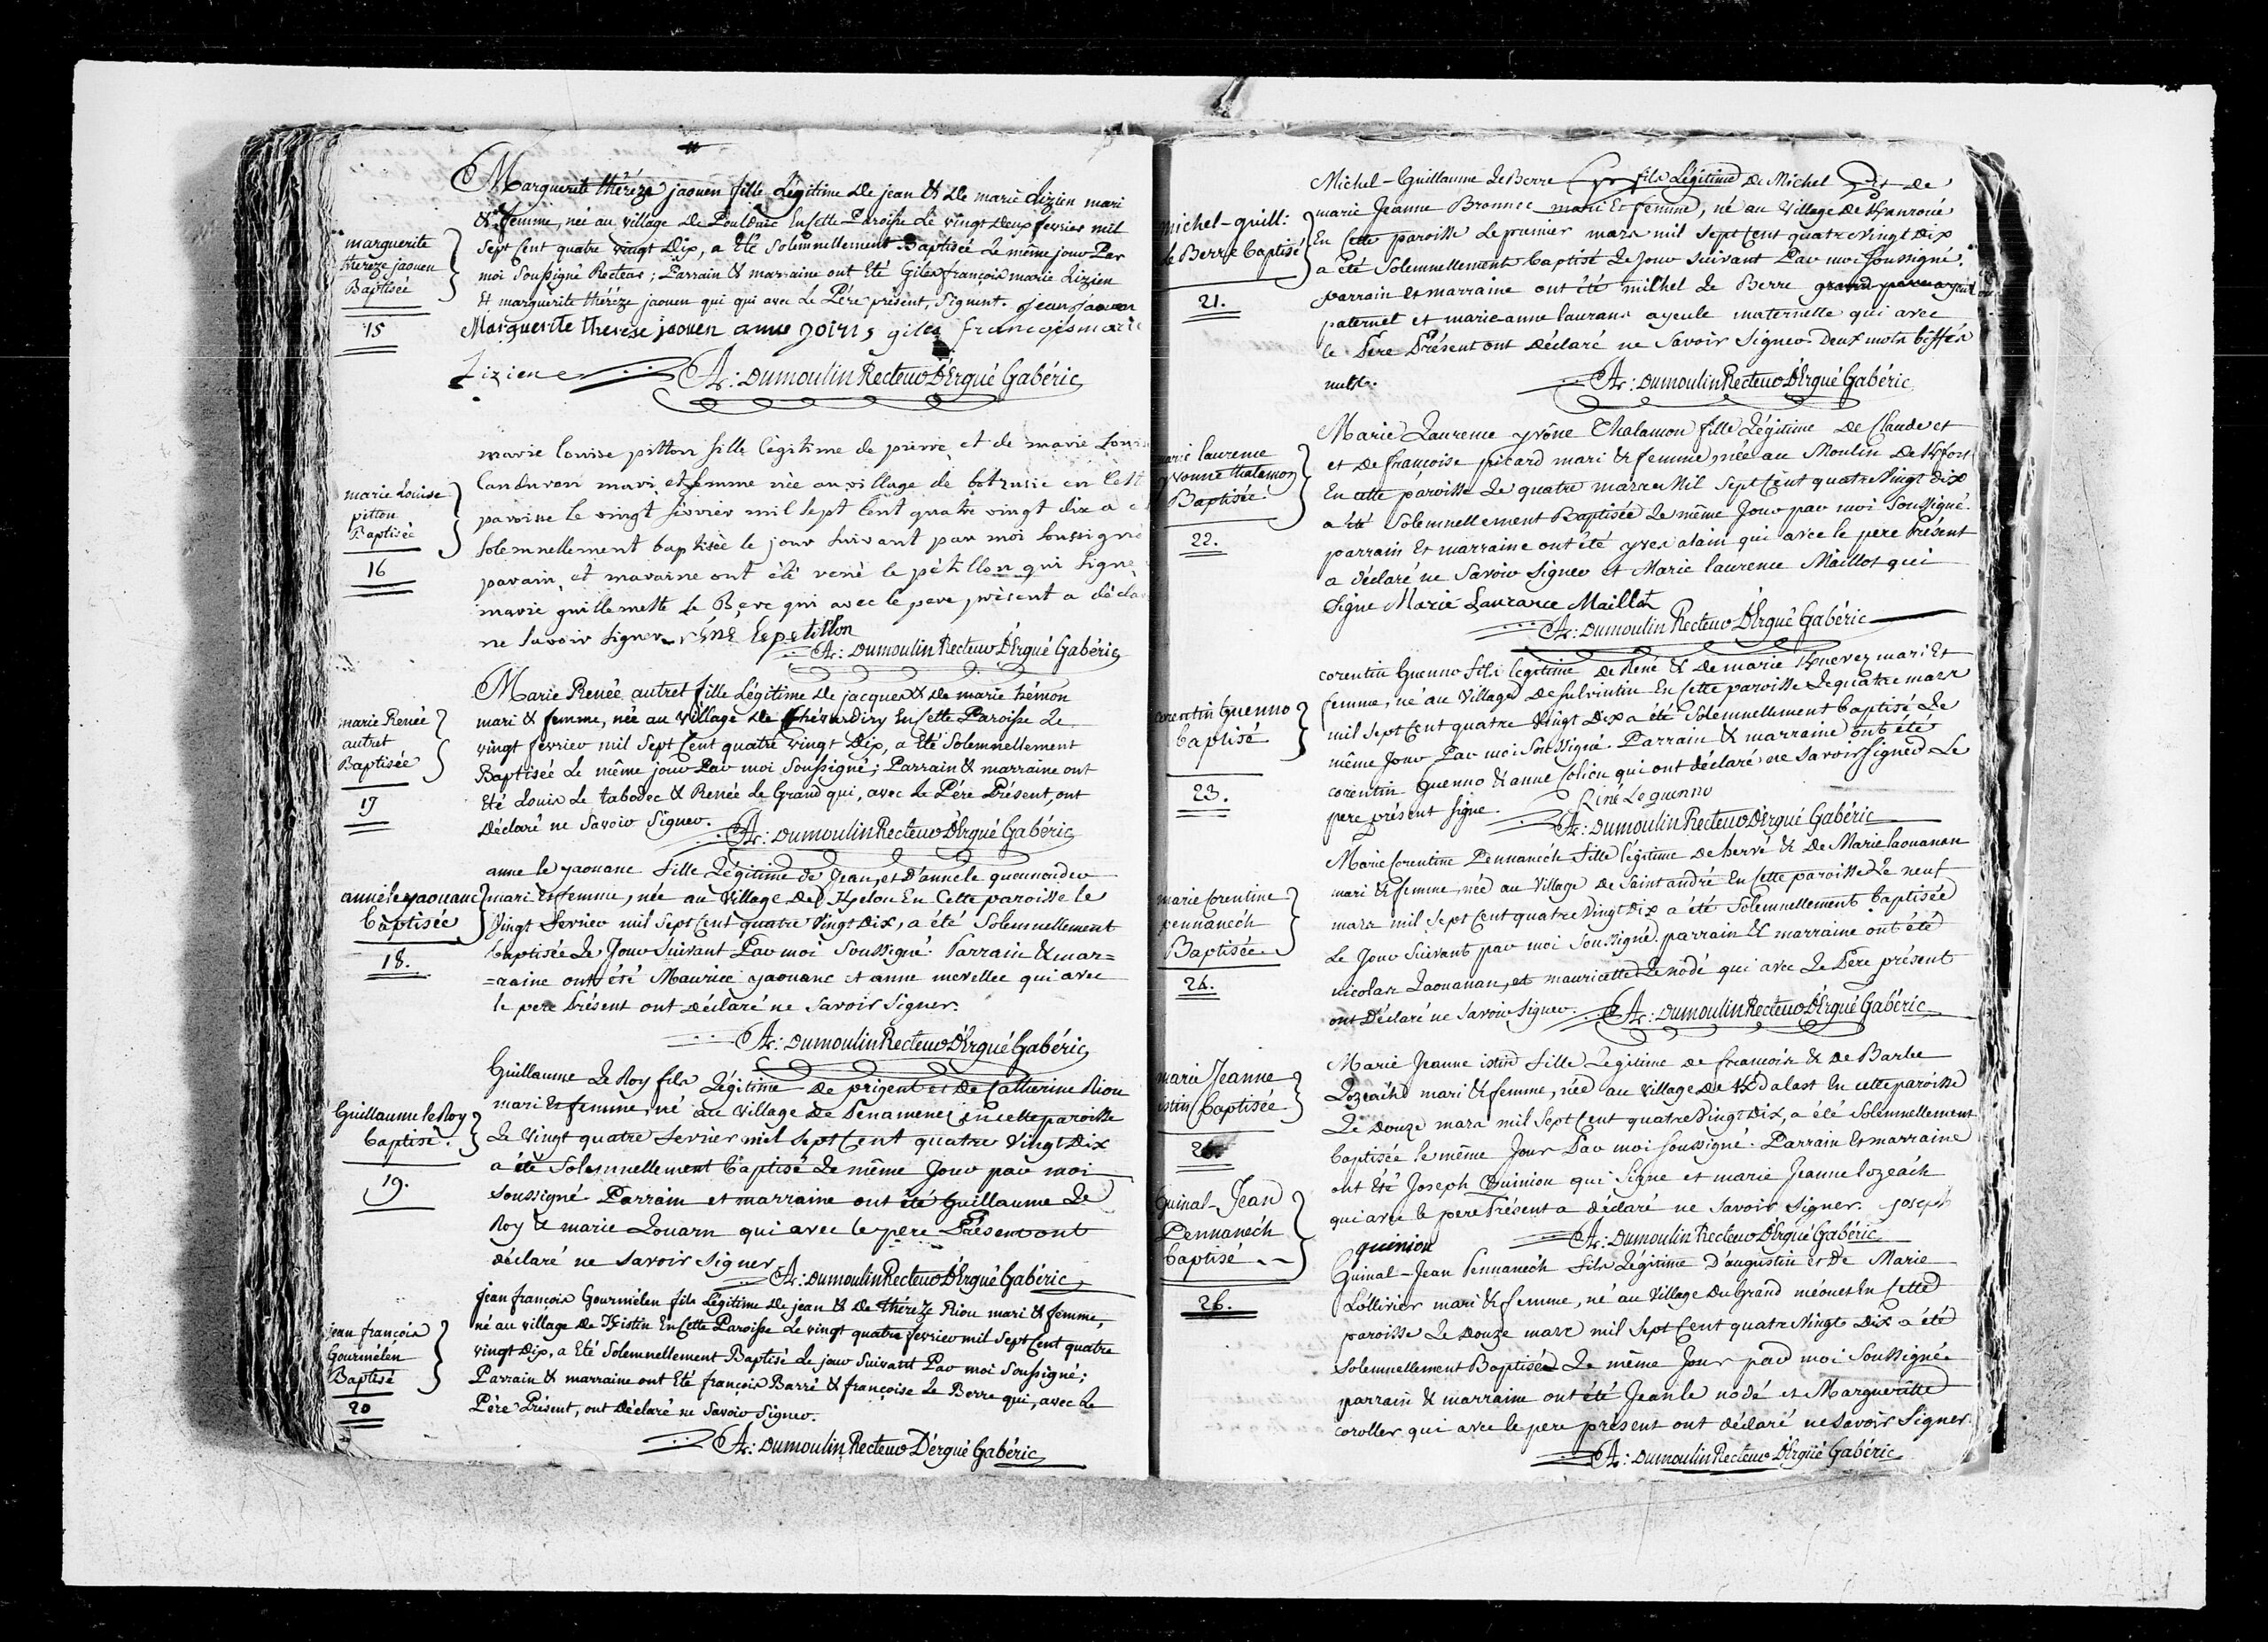 Marguerite thérèze jaouen fille Légitime de jean & de marie Lizien mari
& femme, née au village de Poulduic En cette Paroisse Le vingt Deux fevrier mil
Sept Cent quatre vingt Dix, a Eté Solemnellement Baptisée Le même jour Par
moi Soussigné Recteur ; Parrain & marraine ont Eté Giles françois marie Lizien
Et marguerite thérèze jaouen qui qui avec Le Pére présent, Signent. jean jaouen
Marguerite therese jaouen anne giles francois marie
Lizien
A: DUmoulin Recteur D'Ergué Gabéric
marguerite
thereze jaouen
Baptisée
15
marie louise pitton fille légitime de pierre et de marie Louise
Canduron mari et femme née au village de botzusic en Cette
paroisse le vingt février mil sept Cent quatre vingt dix a
solemnellement baptisée le jour suivant par moi soussigné
parain et maraine ont été rené le pétillon qui signe
marie guillemette Le Berre qui avec le pere présent a déclaré
ne savoir signer. réné lepetillon
A: DUmoulin Recteur D'Ergué Gabéric
marie Louise
pitton
Baptisée
16
Marie Renée autret fille Légitime de jacques & de marie hémon
mari & femme, née au village de Chévardiry En Cette Paroisse Le
vingt fevrier mil Sept Cent quatre vingt Dix, a Eté Solemnellement
Baptisée Le même jour Par moi Soussigné ; Parrain & marraine ont
Eté Louis Le tabodec & Renée Le Grand qui, avec Le Pére Présent, ont
Déclaré ne Savoir Signer.
A: DUmoulin Recteur D'Ergué Gabéric
marie Renée
autret
Baptisée
17
anne le yaouanc fille Légitime de Jean, et D'anne le quennoideu
mari Et femme, née au Village De Kgelou En Cette paroisse le
Vingt Fevrier mil Sept Cent quatre Vingt Dix, a été Solemnellement
baptisée Le Jour Suivant Par moi Soussigné Parrain & mar=
=raine ont été Maurice yaouanc et anne mevellec qui avec
le pere Présent ont Déclaré ne Savoir Signer.
A: DUmoulin Recteur D'Ergué Gabéric
anne le yaouanc
baptisée
18.
Guillaume Le Roy fils Légitime De prigent et De Catherine Riou
mari Et femme, né au Village De Penamenez En cette paroisse
Le Vingt quatre Fevrier mil Sept Cent quatre Vingt Dix
a été Solemnellement Baptisé Le même Jour par moi
Soussigné Parrain et marraine ont été Guillaume Le
Roy & marie Louarn qui avec le pere Présent ont
déclaré ne savoir Signer
A: DUmoulin Recteur D'Ergué Gabéric
Guillaume le Roy
baptisé.
19.
jean françois Gourmélen fils Légitime de jean & de thérèze Riou mari & femme,
né au village de Kistin En Cette Paroisse Le vingt quatre fevrier mil Sept Cent quatre
vingt Dix, a Eté Solemnellement Baptisé Le jour Suivant Par moi Soussigné ;
Parrain & marraine ont Eté françois Barré & françoise Le Berre qui, avec Le
Pére Présent, ont Déclaré ne Savoir Signer.
A: DUmoulin Recteur D'érgué Gabéric
jean françois
Gourmélen
Baptisé
20
Michel-Guillaume Le Berre fils Légitime De Michel Et De
marie Jeanne Bronnec mari Et femme, né au Village De Kanroué
En Cette paroisse Le premier mars mil Sept Cent quatre Vingt Dix
a été Solemnellement baptisé Le Jour Suivant Par moi Soussigné.
parrain et marraine ont été michel Le Berre grand pere ayeul
paternel et marie-anne laurans ayeule maternelle qui avec
le Pere Présent ont Déclaré ne Savoir Signer. Deux mots biffés
nuls.
A: DUmoulin Recteur D'Ergué Gabéric
michel-guill:
le Berre baptisé
21.
Marie Laurence yvône Thalamon fille Légitime De Claude et
et De françoise picard mari & femme, née au Moulin De Kfors
En cette paroisse Le quatre mars Mil Sept Cent quatre Vingt Dix
a été Solemnellement Baptisée Le même Jour par moi Soussigné.
parrain Et marraine ont été yves alain qui avec le pere Présent
a déclaré ne Savoir Signer et Marie laurence Maillot qui
Signe Marie Laurance Maillot
A: DUmoulin Recteur D'Ergué Gabéric
marie laurence
yvonne thalamon
Baptisée.
22.
corentin Guenno fils légitime De René & De marie Kneuvez mari Et
femme, né au Village De sulvintin En Cette paroisse Le quatre mars
mil Sept Cent quatre Vingt Dix a été Solemnellement baptisé Le
même Jour Par moi Soussigné. Parrain & marraine ont été
corentin Guenno & anne Colicu qui ont déclaré ne Savoir Signer Le
pere présent Signe. Réné Leguenno
A: DUmoulin Recteur D'Ergué Gabéric
corentin Guenno
baptisé
23.
Marie Corentine Pennanéch fille légitime De hervé & De Marie laouanan
mari & femme, née au Village De Saint andré En Cette paroisse Le neuf
mars mil Sept Cent quatre Vingt Dix a été Solemnellement baptisée
Le Jour Suivant par moi Soussigné. parrain & marraine ont été
nicolas Laouanan, et mauricette Le nodé qui avec Le Pere présent
ont Déclaré ne Savoir Signer.
A: DUmoulin Recteur D'Ergué Gabéric
marie Corentine
pennanéch
Baptisée
24.
Marie Jeanne istin fille Légitime de françois & De Barbe
Lozeach mari & femme, née au Village De Kdalast En cette paroisse
Le Douze mars mil Sept Cent quatre Vingt Dix, a été Solemnellement
baptisée le même Jour Par moi Soussigné. Parrain Et marraine
ont Eté Joseph Quiniou qui Signe et marie Jeanne lozeach
qui avec le pere Présent a déclaré ne Savoir Signer. joseph
quiniou
A: DUmoulin Recteur D'Ergué Gabéric
marie Jeanne
istin baptisée
25.
Guinal-Jean Pennanéch fils Légitime D'augustin et De Marie
Lollivier mari & femme, né au Village Du Grand méouet En Cette
paroisse Le Douze mars mil Sept Cent quatre Vingt Dix a été
Solemnellement Baptisé Le même Jour par moi Soussigné
parrain & marraine ont été Jean le nodé et Marguerite
coroller qui avec le pere présent ont déclaré ne Savoir Signer.
A: DUmoulin Recteur D'Ergüé Gabéric
Guinal-Jean
Pennanech
baptisé
26.